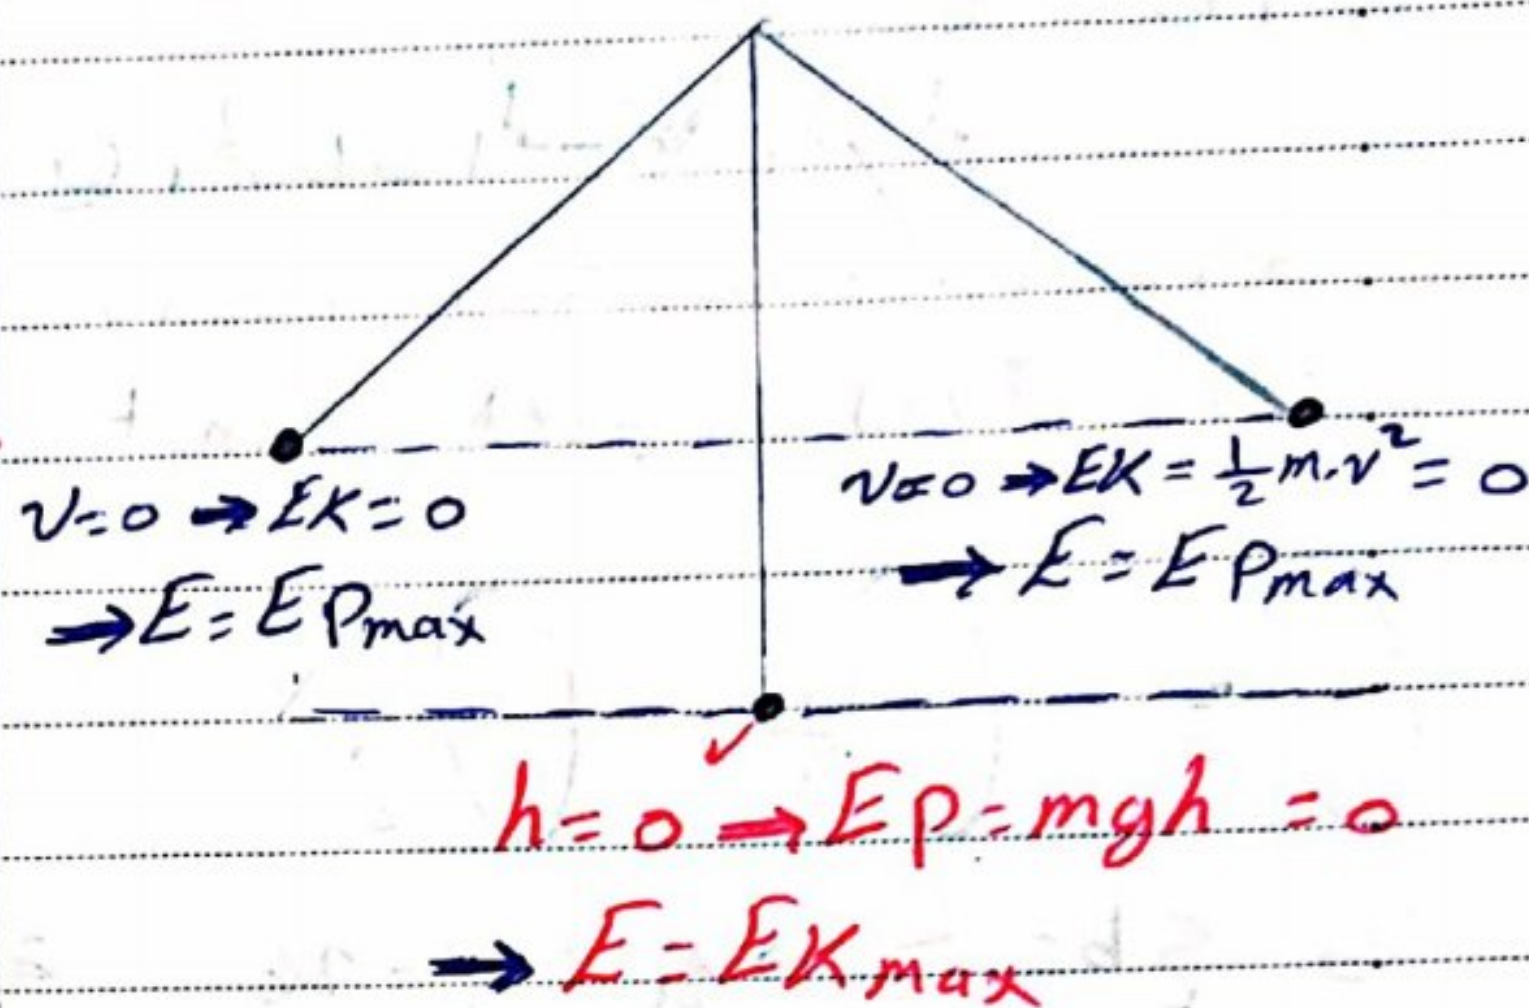 v=0 → EK=0
→ E=EPmax
v=0 → EK = 1/2 m.v² = 0
→ E = EPmax
h=0 → EP=mgh =0
→ E=EKmax